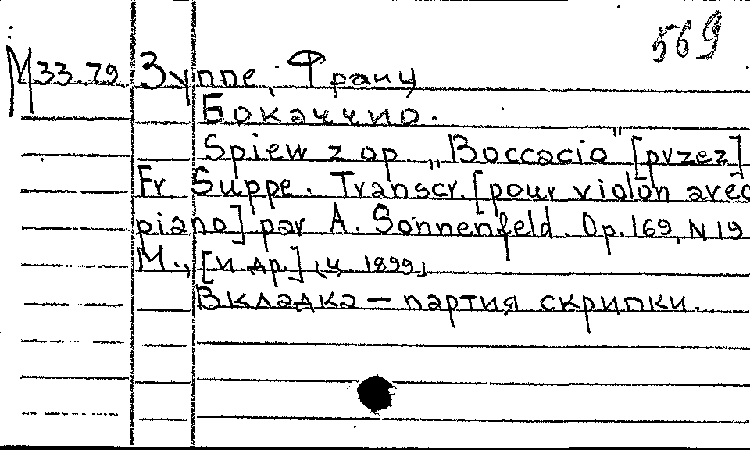 569
М33.79 Зуппе, Франц
Бокаччио.
Spiew z op „Boccacio" [przez]
Fr Suppe. Transcr. [pour violon avec
piano] par A. Sonnenfeld. Op. 169, N 19
М., [и др.] ц. 1899
Вкладка — партия скрипки.